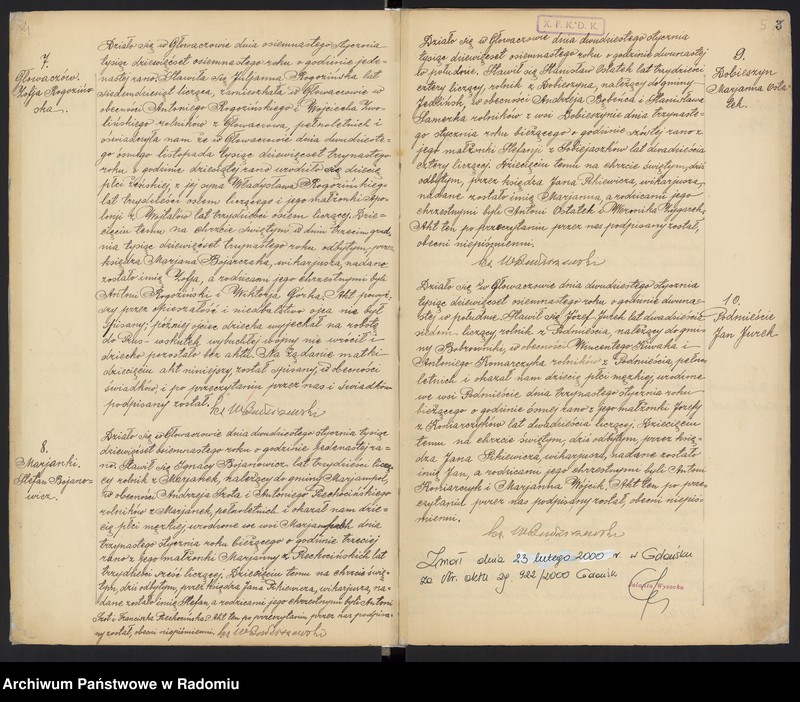 X. F. K. D. K.
5
3
7.
Głowaczów.
Zofja Rogozińska.
Działo się w Głowaczowie dnia osiemnastego stycznia
tysiąc dziewięćset osiemnastego roku o godzinie jede-
nastej rano. Stawiła się Juljanna Rogozińska lat
siedmdziesiąt licząca, zamieszkała w Głowaczowie w
obecności Antoniego Rogozińskiego i Wojciecha
lińskiego rolników z Głowaczowa, pełnoletnich i
oświadczyła nam że w Głowaczowie dnia dwudzieste-
go ósmego listopada tysiąc dziewięćset trzynastego
roku o godzinie dziesiątej rano urodziło się dziecię
płci żeńskiej, z jej syna Władysława Rogozińskiego
lat trzydzieści osiem liczącego i jego małżonki Apo-
lonji z Wojtalów lat trzydzieści osiem liczącej. Dzie-
cięciu temu na chrzcie świętym w dniu trzecim grud-
nia tysiąc dziewięćset trzynastego roku odbytym, przez
księdza Marjana Bojarczaka, wikarjusza, nadano
zostało imię Zofja, a rodzicami jego chrzestnymi byli
Antoni Rogoziński i Wiktorja Górka. Akt powyż-
szy przez opieszałość i niedbalstwo ojca nie był
spisany; później ojciec dziecka wyjechał na robotę
do Prus - wskutek wybuchłej wojny nie wrócił i
dziecko pozostało bez aktu. Na żądanie matki
dziecięcia akt niniejszy został spisany, w obecności
świadków, i po przeczytaniu przez nas i świadków
podpisany został.
8.
Marjanki.
Stefan Bojano-
wicz.
Działo się w Głowaczowie dnia dwudziestego stycznia tysiąc
dziewięćset osiemnastego roku o godzinie jedenastej ra-
no. Stawił się Ignacy Bojanowicz lat trzydzieści liczą-
cy rolnik z Marjanek, należący do gminy Marjampol,
w obecności Andrzeja Kota i Antoniego Piechocińskiego
rolników z Marjanek, pełnoletnich i okazał nam dzie-
cię płci męzkiej, urodzone we wsi dnia
trzynastego stycznia roku bieżącego o godzinie trzeciej
rano z jego małżonki Marjanny z Piechocińskich lat
trzydzieści sześć liczącej. Dziecięciu temu na chrzcie świę-
tym, dziś odbytym, przez księdza Jana wikarjusza, na-
dane zostało imię Stefan, a rodzicami jego chrzestnymi byli Antoni
Kot i Franciszka Piechocińska. Akt ten po przeczytaniu przez nas podpisa-
ny został, obecni niepiśmienni.
9.
Dobieszyn
Marjanna Osta-
tek.
Działo się w Głowaczowie dnia dwudziestego stycznia
tysiąc dziewięćset osiemnastego roku o godzinie dwunastej
w południe. Stawił się Stanisław Ostatek lat trzydzieści
cztery liczący, rolnik z Dobieszyna, należący do gminy
Jedlińsk, w obecności Andrzeja Bobenca i Stanisława
Samerka rolników z wsi Dobieszynie dnia trzynaste-
go stycznia roku bieżącego o godzinie szóstej rano z
jego małżonki Stefanji z Sobiesiaków lat dwadzieścia
cztery liczącej. Dziecięciu temu na chrzcie świętym, dziś
odbytym, przez księdza Jana wikarjusza,
nadane zostało imię Marjanna, a rodzicami jego
chrzestnymi byli Antoni Ostatek i Weronika
Akt ten po przeczytaniu przez nas podpisany został,
obecni niepiśmienni.
10.
Podmieście
Jan Jurek.
Działo się w Głowaczowie dnia dwudziestego stycznia
tysiąc dziewięćset osiemnastego roku o godzinie dwuna-
stej w południe. Stawił się Józef Jurek lat dwadzieścia
siedm liczący rolnik z Podmieścia, należący do gmi-
ny Bobrowniki, w obecności Wincentego Kuwaka i
Antoniego Komarczyka rolników z Podmieścia, pełno-
letnich i okazał nam dziecię płci męzkiej, urodzone
we wsi Podmieście, dnia trzynastego stycznia roku
bieżącego o godzinie ósmej rano z jego małżonki Józefy
z Koniarczyków lat dwadzieścia liczącej. Dziecięciu
temu na chrzcie świętym, dziś odbytym, przez księ-
dza Jana wikarjusza, nadane zostało
imię Jan, a rodzicami jego chrzestnymi byli Antoni
Koniarczyk i Marjanna Wójcik. Akt ten po prze-
czytaniu przez nas podpisany został, obecni niepiś-
mienni.
Zmarł dnia 23 lutego 2000 r. w Gdańsku
za Nr. aktu zg. 922/2000 Gdańsk
Wysocka
Archiwum Państwowe w Radomiu